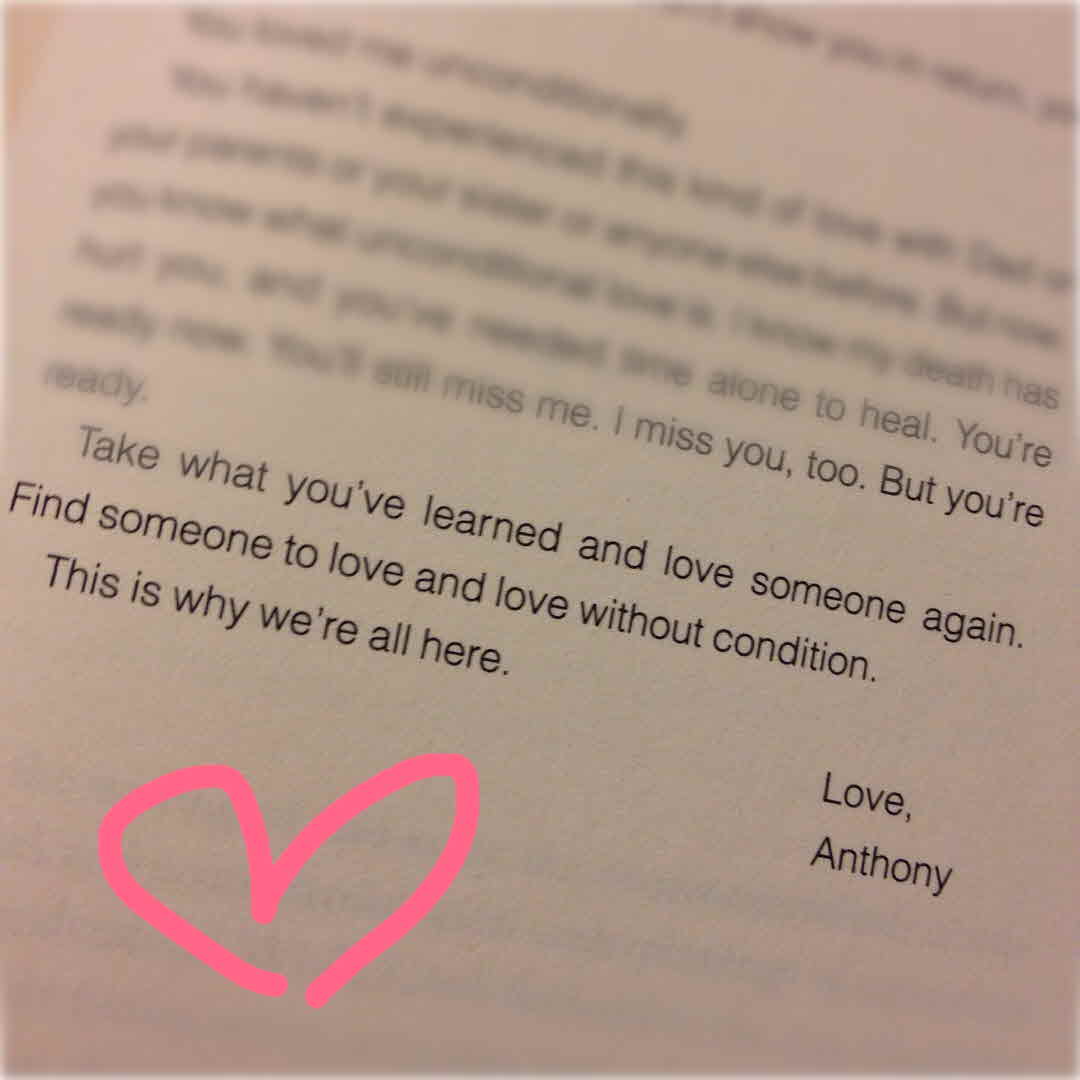 show you in return, yo
You loved me unconditionally.
You haven't experienced this kind of love with Dad or
your parents or your sister or anyone else before. But now,
you know what unconditional love is. I know my death has
hurt you, and you've needed time alone to heal. You're
ready now. You'll still miss me. I miss you, too. But you're
ready.
Take what you've learned and love someone again.
Find someone to love and love without condition.
This is why we're all here.
Love,
Anthony